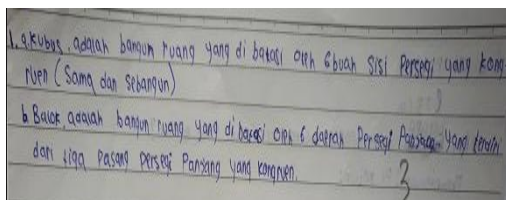 1. a. Kubus, adalah bangun ruang yang di batasi oleh 6 buah sisi persegi yang kong
ruen (Sama dan Sebangun)
b. Balok, adalah bangun ruang yang di batasi oleh 6 daerah Persegi Panjang yang terdiri
dari tiga pasang persegi Panjang yang kongruen.
3